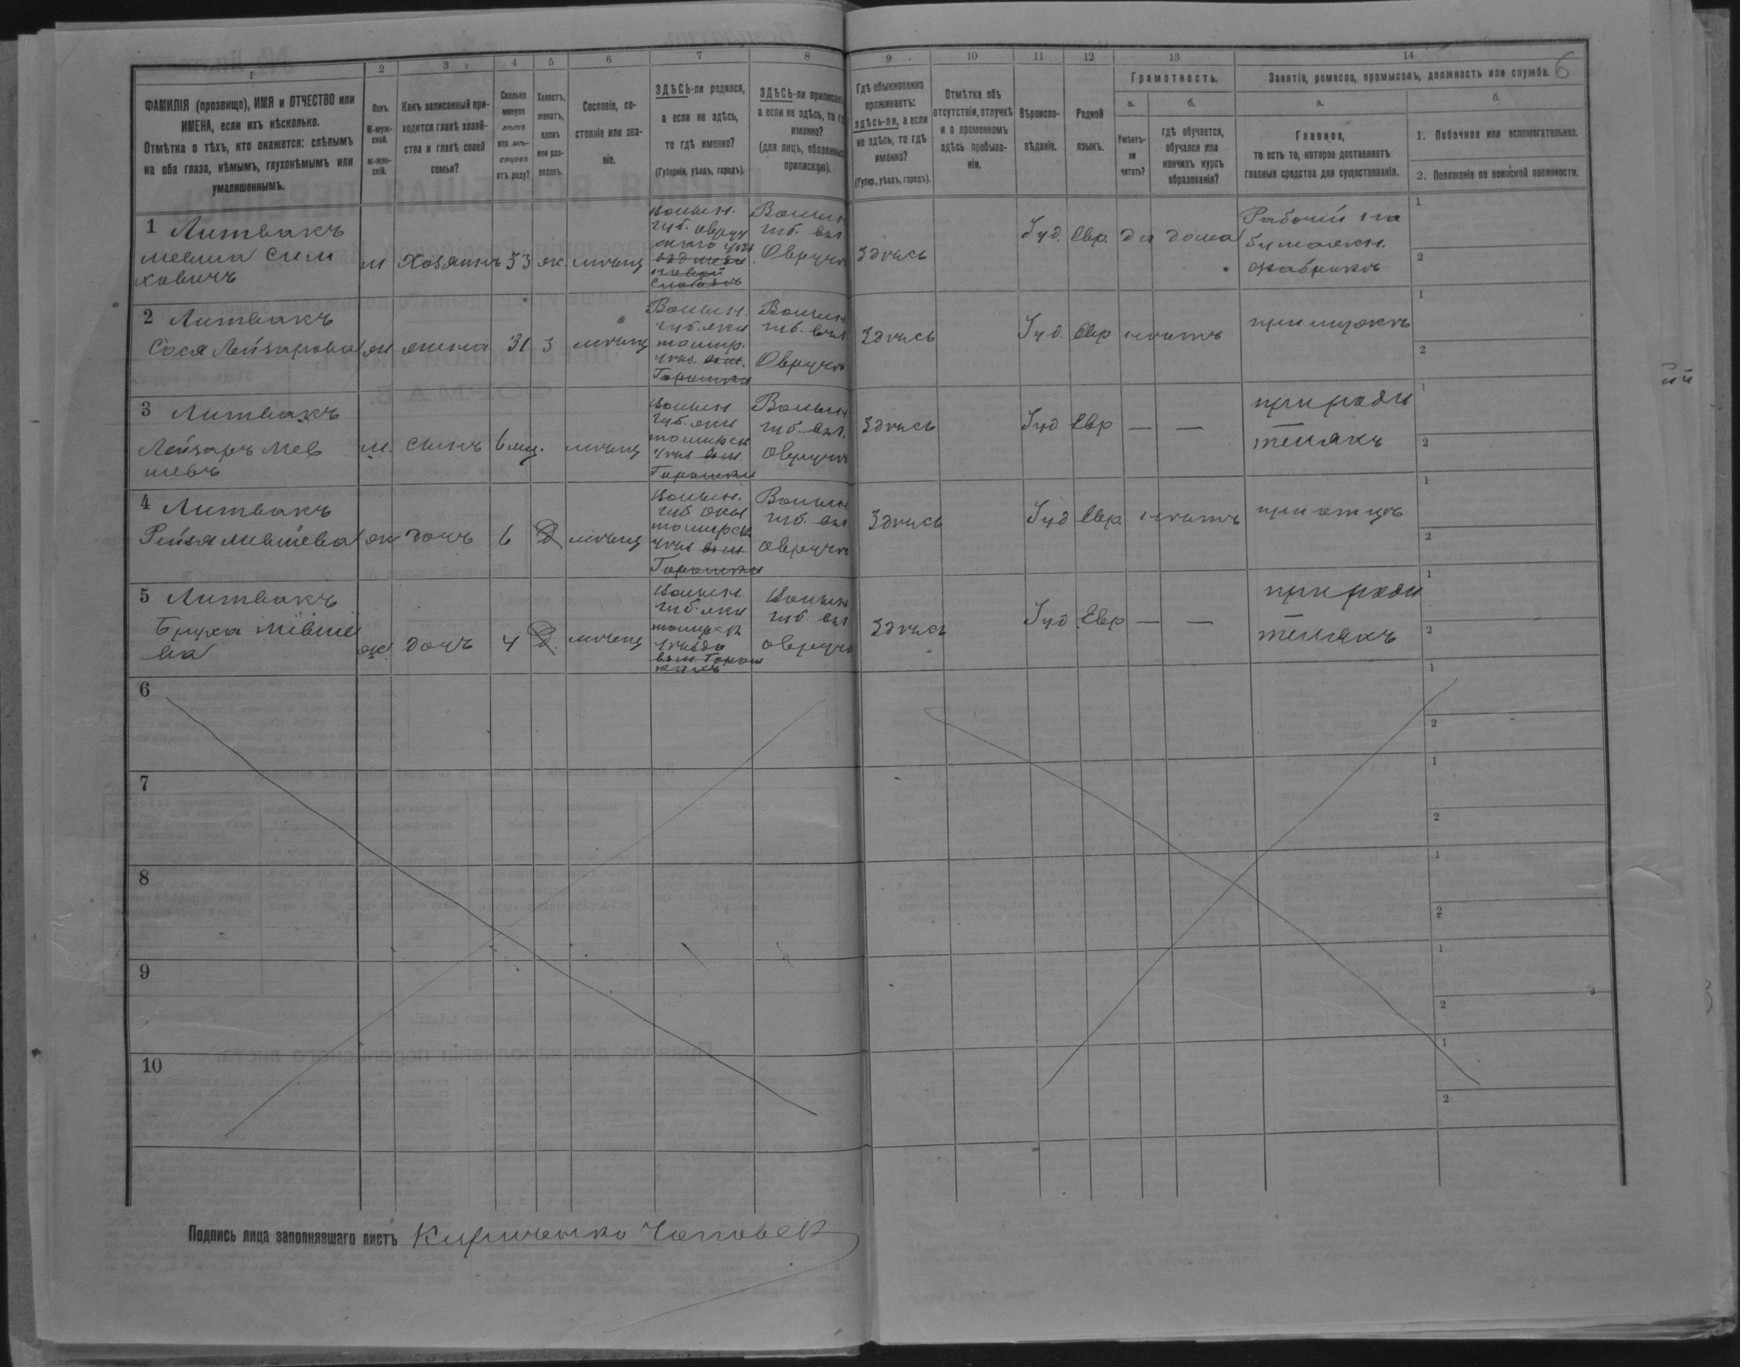 1 2 3 4 5 6 7 8 9 10 11 12 13 14
6
ФАМИЛІЯ (прозвище), ИМЯ и ОТЧЕСТВО или
ИМЕНА, если ихъ нѣсколько.
Отмѣтка о тѣхъ, кто окажется: слѣпымъ
на оба глаза, нѣмымъ, глухонѣмымъ или
умалишеннымъ.
Полъ.
М-муж-
ской.
Ж-жен-
скій.
Какъ записанный при-
ходится главѣ хозяй-
ства и главѣ своей
семьи?
Сколько
минуло
лѣтъ
или мѣ-
сяцевъ
отъ роду?
Холостъ,
женатъ,
вдовъ
или раз-
веденъ.
Сословіе, со-
стояніе или зва-
ніе.
ЗДѢСЬ-ли родился,
а если не здѣсь,
то гдѣ именно?
(Губернія, уѣздъ, городъ).
ЗДѢСЬ-ли приписанъ,
а если не здѣсь, то гдѣ
именно?
(для лицъ, обязанныхъ
припискою).
Гдѣ обыкновенно
проживаетъ:
здѣсь-ли, а если
не здѣсь, то гдѣ
именно?
(Губер., уѣздъ, городъ).
Отмѣтка объ
отсутствіи, отлучкѣ
и о временномъ
здѣсь пребыва-
ніи.
Вѣроиспо-
вѣданіе.
Родной
языкъ.
Грамотность.
а.
Умѣетъ-
ли
читать?
б.
гдѣ обучается,
обучался или
кончилъ курсъ
образованія?
Занятіе, ремесло, промыселъ, должность или служба.
а.
Главное,
то есть то, которое доставляетъ
главныя средства для существованія.
б.
1. Побочное или вспомогательное.
2. Положеніе по воинской повинности.
1 Литвакъ
Мевша Сим
ховичъ
м. Хозяинъ 33 ж. мѣщ
Волын.
губ. Овруч
Волын
губ. Овручъ
Здѣсь Іуд. Евр. да дома
Рабочій на
бумажн.
фабрикѣ
1
2
2 Литвакъ
Сося Лейзарова ж жена 31 з мѣщ
Волын.
губ. жи
томир.
уѣз. вм.
Горошки
Волын
губ.
Овручъ
Здѣсь Іуд. Евр нѣтъ при мужѣ
1
2
3 Литвакъ
Лейзаръ Мев
шевъ
м. сынъ 6 мц. мѣщ
Волын
губ. жи
томирск
уѣз вм
Горошки
Волын
губ.
Овручъ
Здѣсь Іуд Евр — — при роди
теляхъ
1
2
4 Литвакъ
Рейзя Мевшева ж дочь 6 мѣщ
Волын.
губ жи
томирск
уѣз вм
Горошки
Волын
губ.
Овручъ
Здѣсь Іуд Евр. нѣтъ при отцѣ
1
2
5 Литвакъ
Бруха Мевше
ва
ж. дочь 4 мѣщ
Волын
губ. жи
уѣзда
вм Горош
кахъ
Волын
губ
Овручъ
Здѣсь Іуд. Евр — — при роди
теляхъ
1
2
6
1
2
7
1
2
8
1
2
9
1
2
10
1
2
Подпись лица заполнявшаго листъ Кириченко